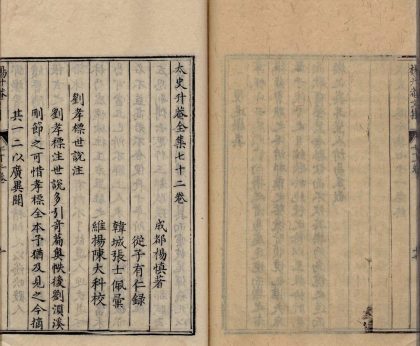 太史升菴全集七十二卷
成都楊慎著
從子有仁錄
韓城張士佩彙
維楊陳大科校
劉孝標世說注
劉孝標注世說多引奇篇奧帙後劉湏溪
刪節之可惜孝標全本予猶及見之今摘
其一二以廣異聞